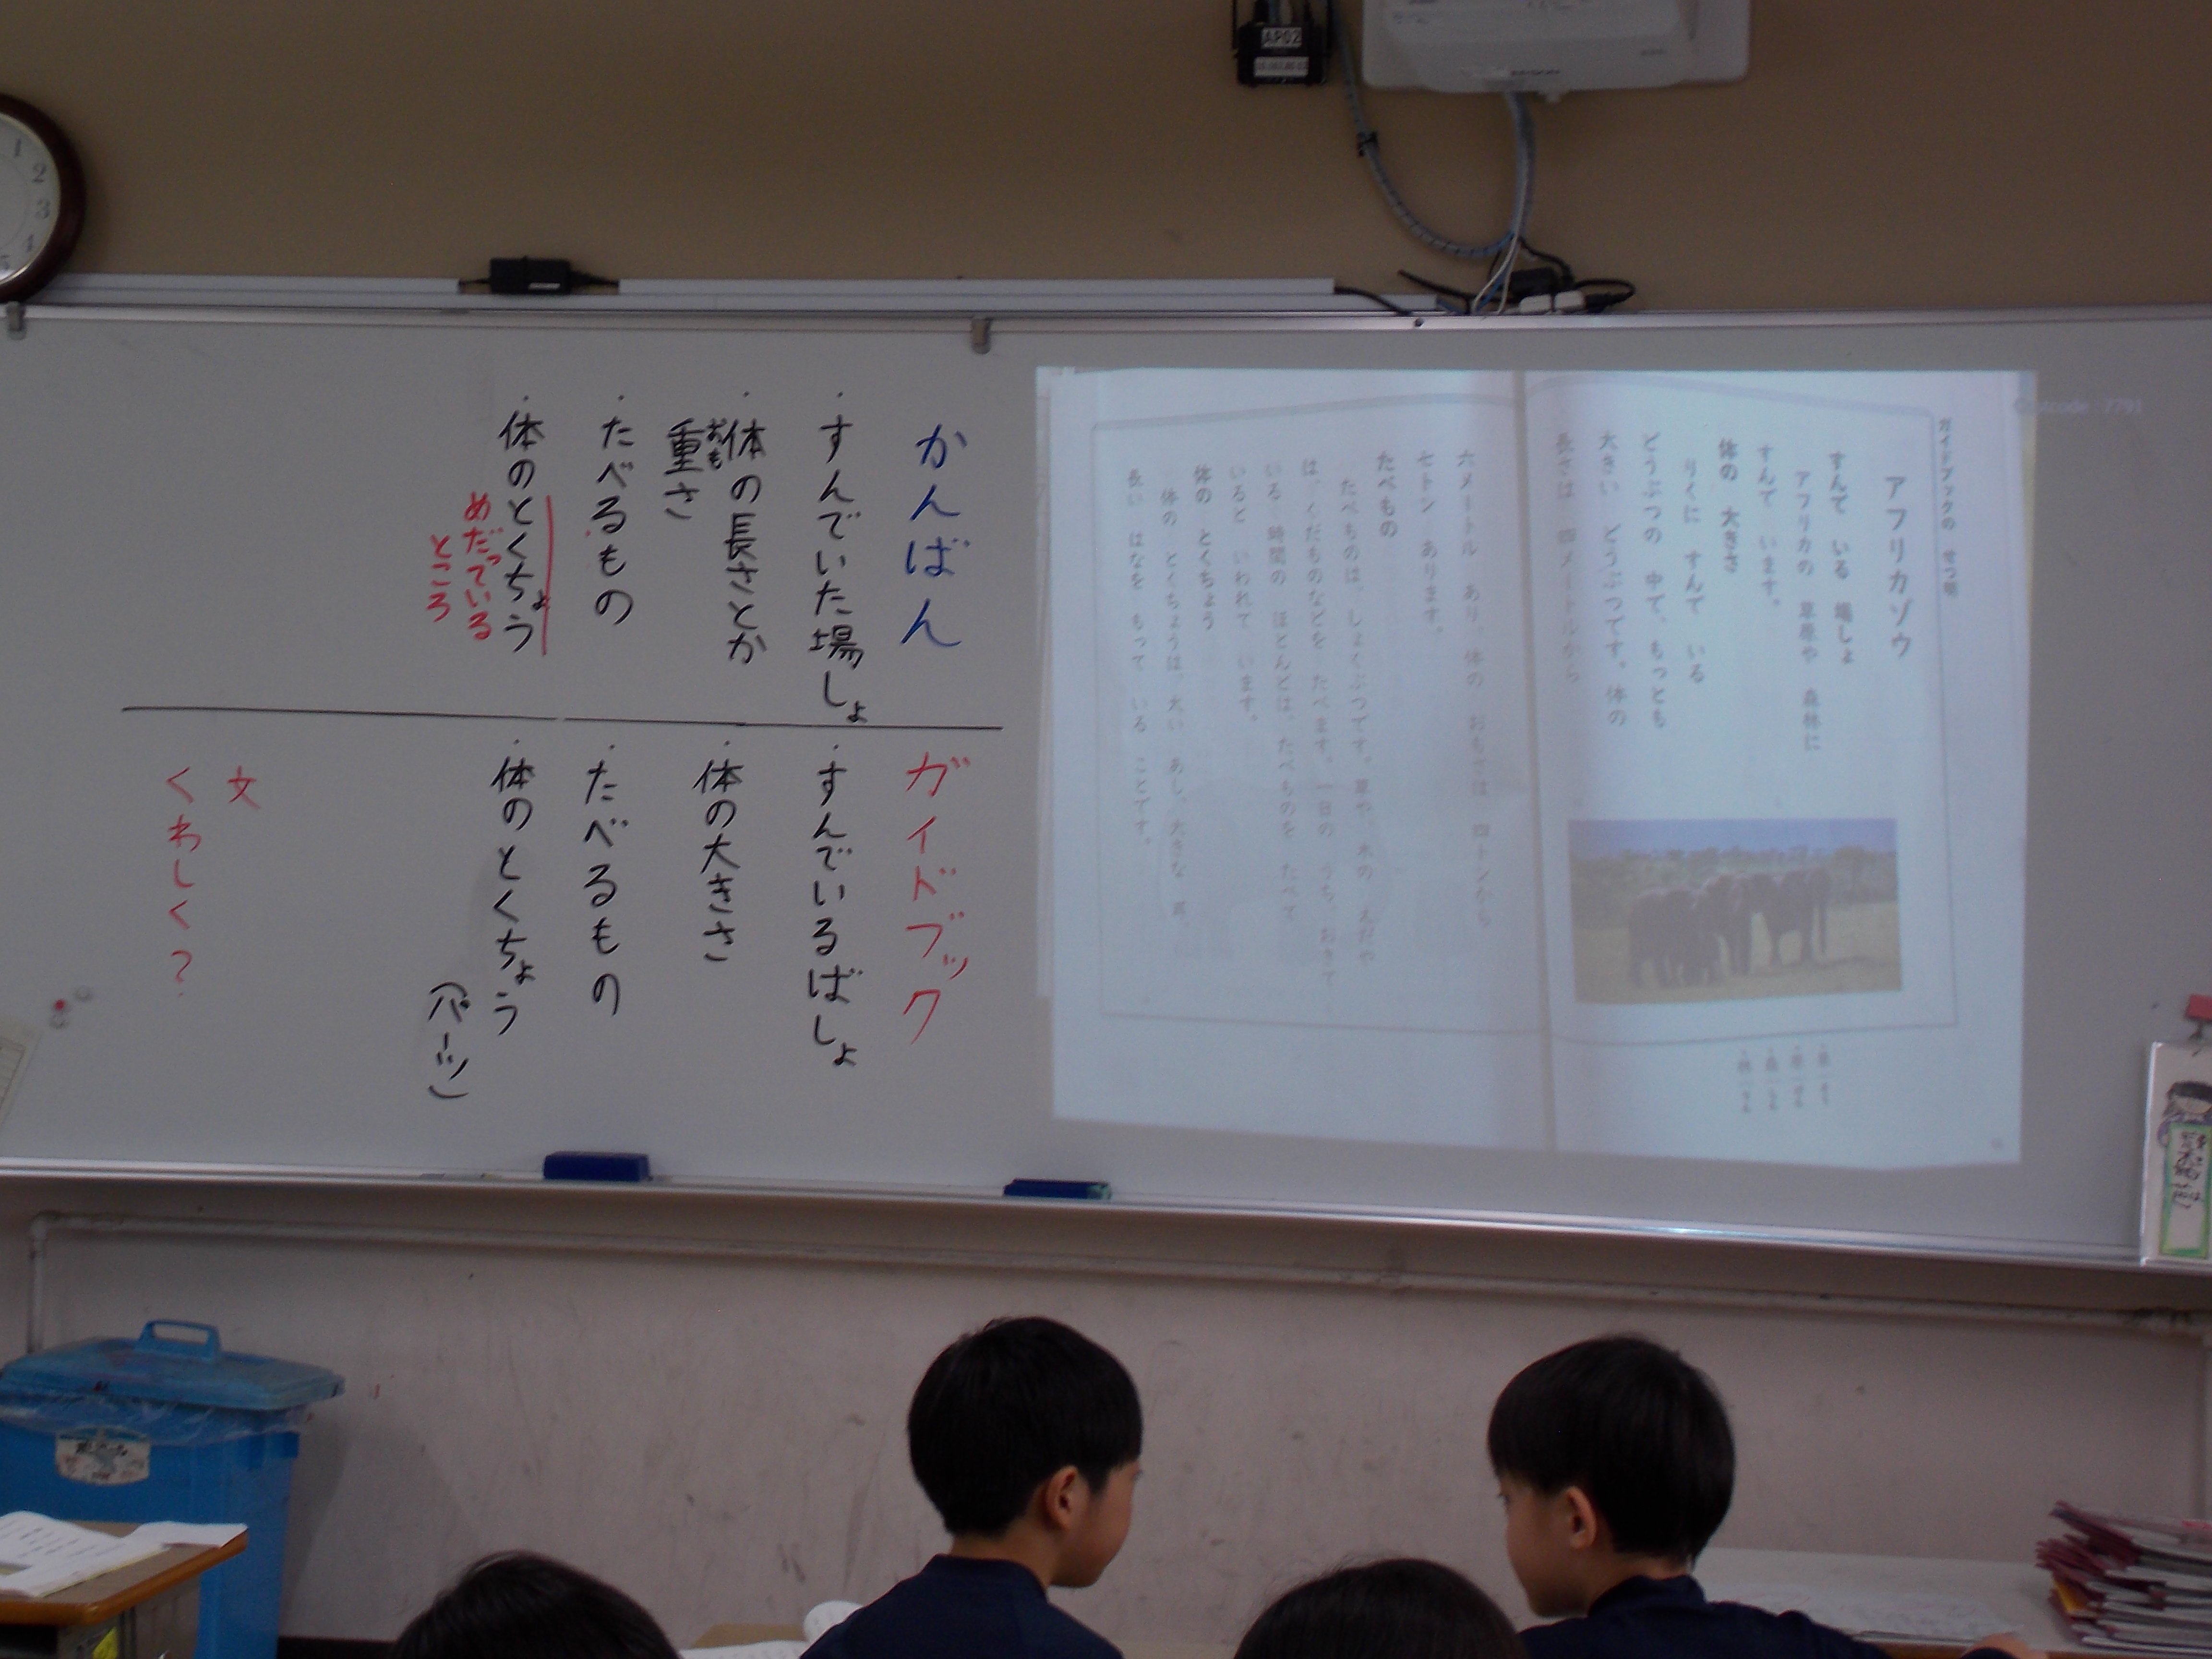 ガイドブックの せつ明
アフリカゾウ
すんで いる 場しょ
アフリカの 草原や 森林に
すんで います。
体の 大きさ
りくに すんで いる
どうぶつの 中で、もっとも
大きい どうぶつです。体の
長さは 四メートルから
六メートル あり、体の おもさは 四トンから
七トン あります。
たべもの
たべものは、しょくぶつです。草や、木の えだや
は、くだものなどを たべます。一日の うち、おきて
いる 時間の ほとんどは、たべものを たべて
いると いわれて います。
体の とくちょう
体の とくちょうは、太い あし、大きな 耳、
長い はなを もって いる ことです。
かんばん
・すんでいた場しょ
・体の長さとか
おも
重さ
・たべるもの
・体のとくちょう
めだっている
ところ
ガイドブック
・すんでいるばしょ
・体の大きさ
・たべるもの
・体のとくちょう
(パーツ)
文
くわしく?
AP02
1
2
3